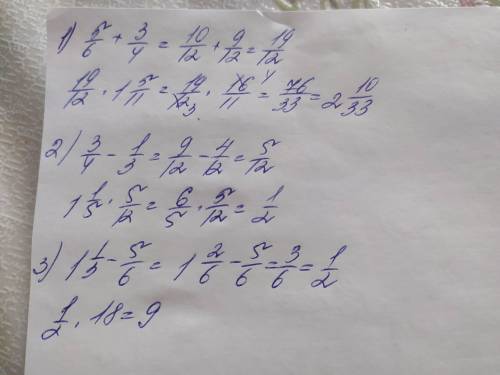 1) 5/6 + 3/4 = 10/12 + 9/12 = 19/12
19/12 · 1 5/11 = 19/12 3 · 16/11 4 = 76/33 = 2 10/33
2) 3/4 - 1/3 = 9/12 - 4/12 = 5/12
1 1/5 · 5/12 = 6/5 · 5/12 = 1/2
3) 1 1/3 - 5/6 = 1 2/6 - 5/6 = 3/6 = 1/2
1/2 · 18 = 9